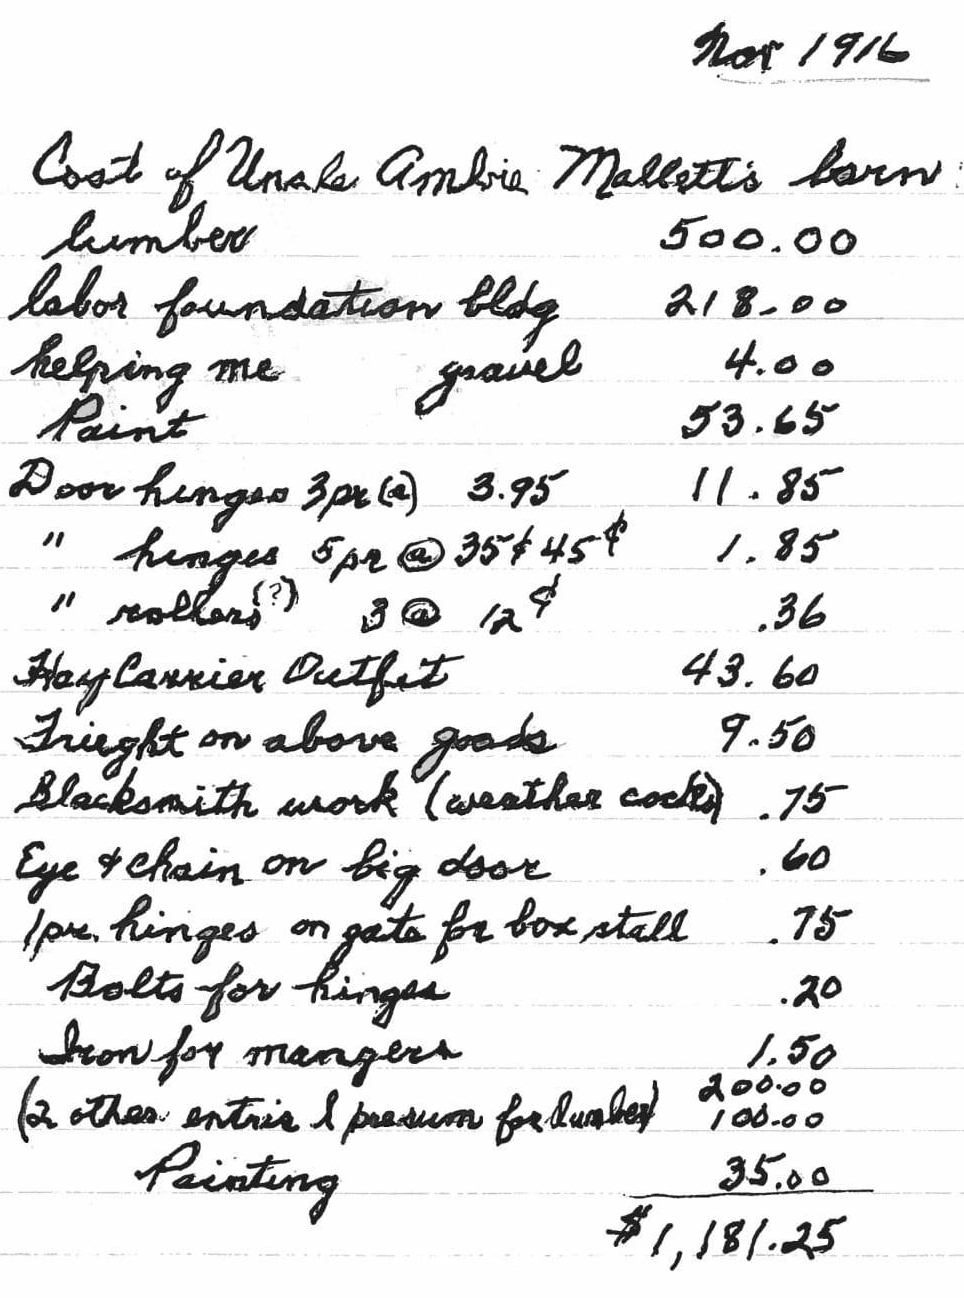 Nov 1916
Cost of Uncle Ambie Mallett's barn:
lumber 500.00
labor foundation bldg 218.00
helping me gravel 4.00
Paint 53.65
Door hinges 3pr (a) 3.95 11.85
" hinges 5 pr @ 35¢ 45¢ 1.85
" rollers (?) 3 @ 12¢ .36
Hay Carrier Outfit 43.60
Frieght on above goods 9.50
Blacksmith work (weather cocks) .75
Eye & chain on big door .60
1pr. hinges on gate for box stall .75
Bolts for hinges .20
Iron for mangers 1.50
200.00
(2 other entris I presum for lumber) 100.00
Painting 35.00
$1,181.25